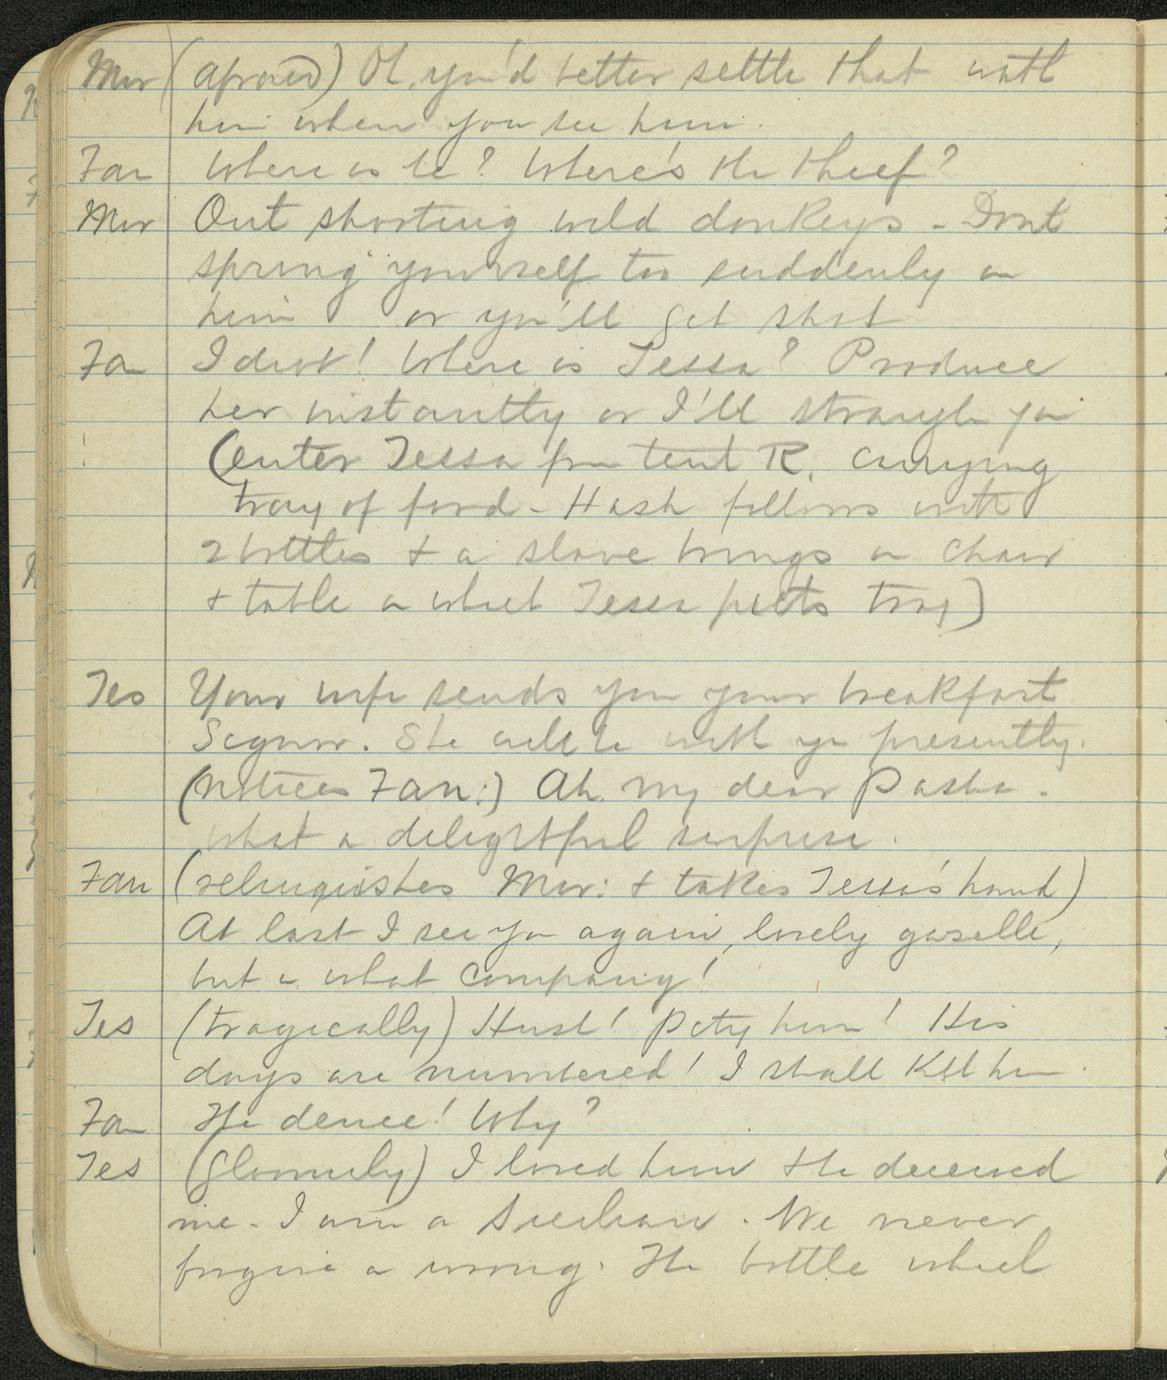 Mir (afraid) Oh, you'd better settle that with
him when you see him.
Fan Where is he? Where's the thief?
Mir Out shooting wild donkeys - Dont
spring yourself too suddenly on
him or you'll get shot
Fan Idiot! Where is Tessa? Produce
her instantly or I'll strangle you
(Enter Tessa from tent R. carrying
tray of food - Hash follows with
2 bottles & a slave brings on chair
& table on which Tessa puts tray)
Tes Your wife sends you your breakfast
Signor. She will be with you presently.
(notices Fan:) Ah my dear Pasha.
what a delightful surprise.
Fan (relinquishes Mir: & takes Tessa's hand)
At last I see you again, lovely gazelle,
but in what company!
Tes (tragically) Hush! Pity him! His
days are numbered! I shall kill him.
Fan The deuce! Why?
Tes (gloomily) I loved him & he deceived
me. I am a Sicilian. We never
forgive a wrong. The bottle which